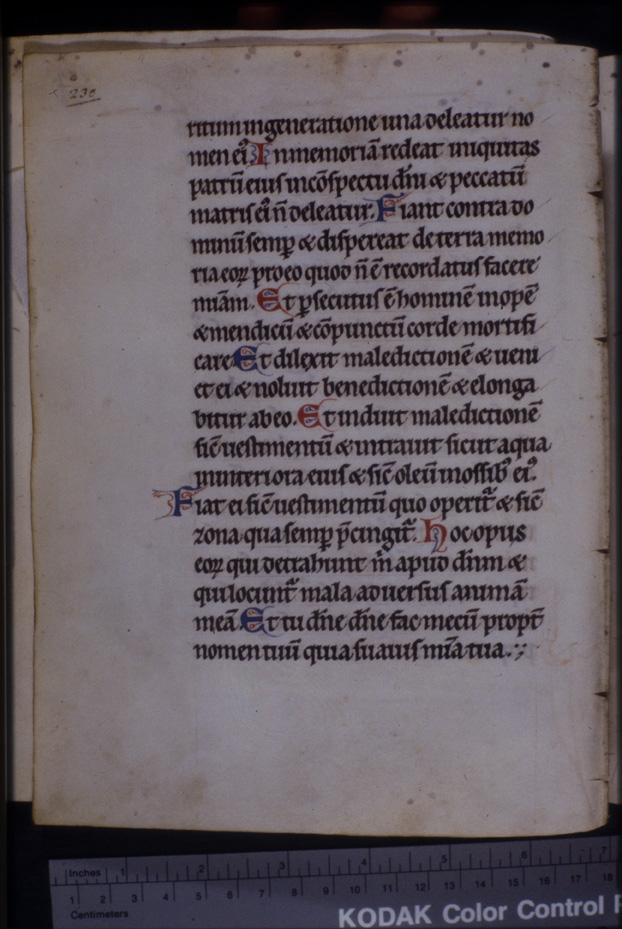 230
ritum in generatione una deleatur no
men ei⁹. In memoriā redeat iniquitas
patrū eius in cōspectu dñi & peccatū
matris ei⁹ ñ deleatur. Fiant contra do
minū semp̲ & dispereat de terra memo
ria eoꝝ pro eo quod ñ ē recordatus facere
miām. Et p̲secutus ē hominē inopē
& mendicū & cōpunctū corde mortifi
care. Et dilexit maledictionē & ueni
et ei & noluit benedictionē & elonga
bitur ab eo. Et induit maledictionē
sic̄ uestimentū & intrauit sicut aqua
in interiora eius & sic̄ oleū in ossib⁹ ei⁹.
Fiat ei sic̄ uestimentū quo operit᷑ & sic̄
zona qua semp̲ p̄cingit᷑. Hoc opus
eoꝝ qui detrahunt m̄ apud dñm &
qui locunt᷑ mala aduersus animā
meā. Et tu dñe dñe fac mecū propt̄
nomen tuū quia suauis mīa tua.
Inches 1 2 3 4 5 6 7
1 2 3 4 5 6 7 8 9 10 11 12 13 14 15 16 17 18
Centimeters
KODAK Color Control